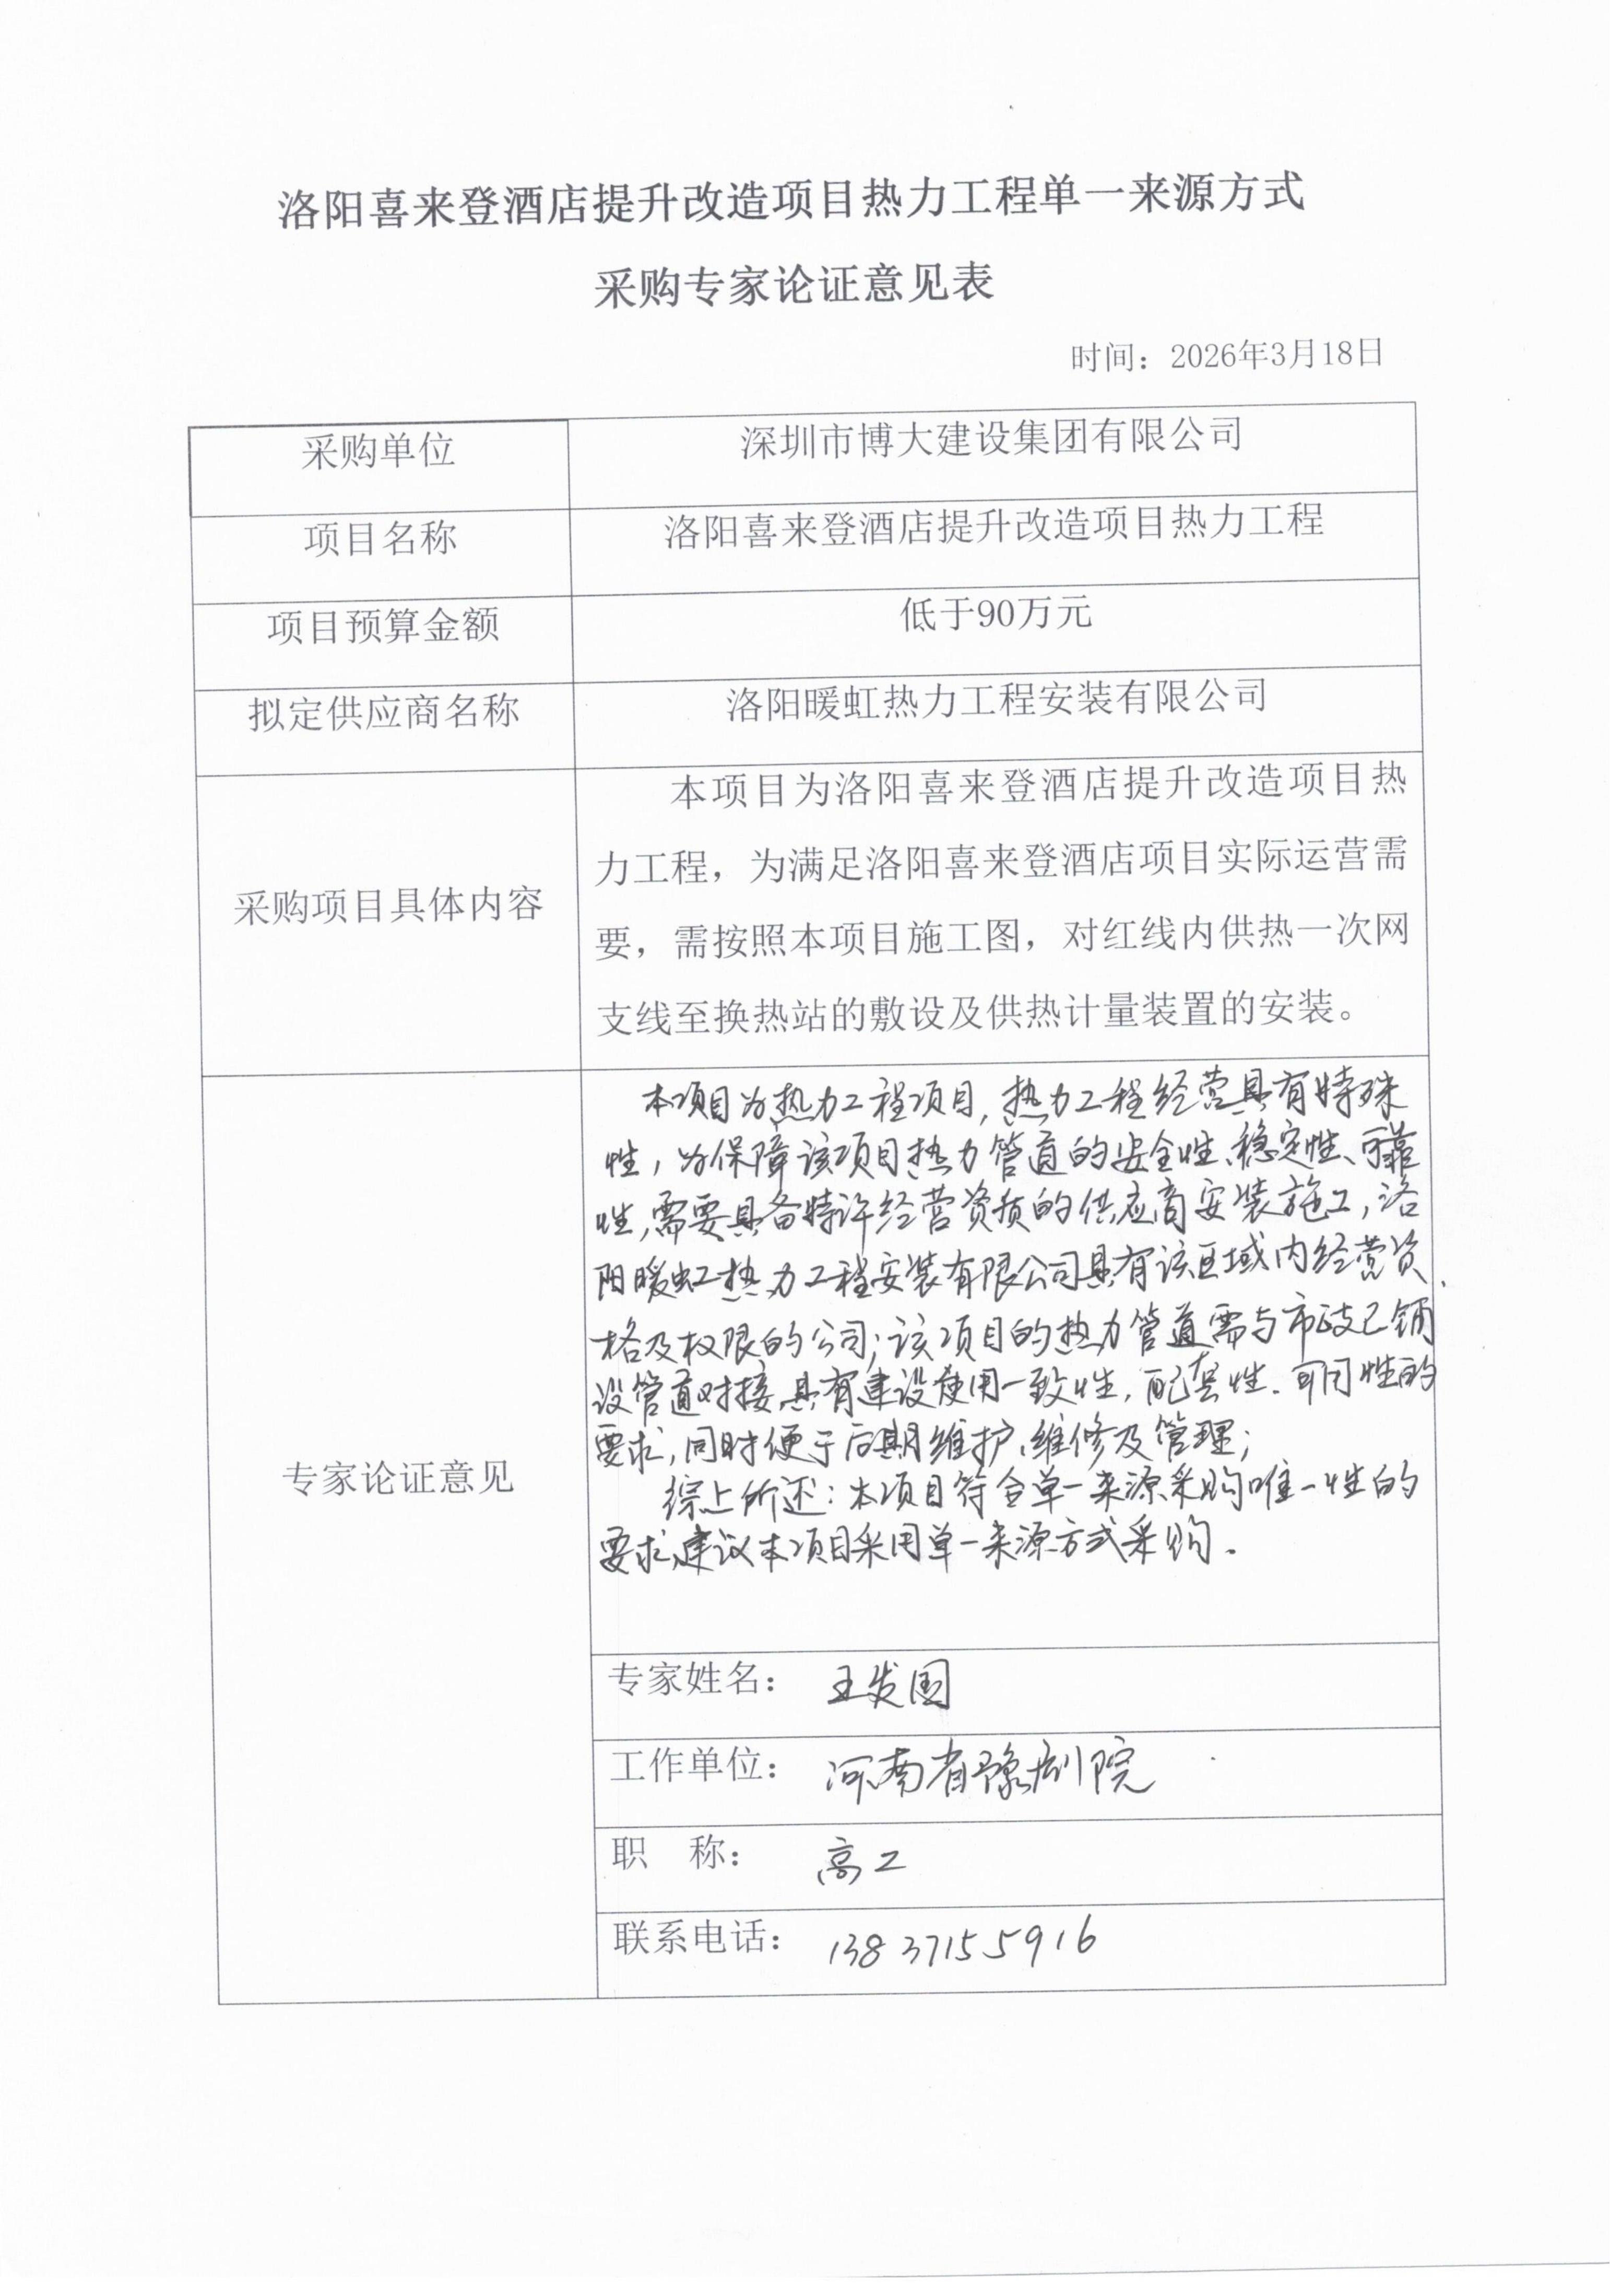 洛阳喜来登酒店提升改造项目热力工程单一来源方式
采购专家论证意见表
时间：2026年3月18日
采购单位
深圳市博大建设集团有限公司
项目名称
洛阳喜来登酒店提升改造项目热力工程
项目预算金额
低于90万元
拟定供应商名称
洛阳暖虹热力工程安装有限公司
采购项目具体内容
本项目为洛阳喜来登酒店提升改造项目热
力工程，为满足洛阳喜来登酒店项目实际运营需
要，需按照本项目施工图，对红线内供热一次网
支线至换热站的敷设及供热计量装置的安装。
专家论证意见
本项目为热力工程项目，热力工程经营具有特殊
性，为保障该项目热力管道的安全性、稳定性、可靠
性，需要具备特许经营资质的供应商安装施工，洛
阳暖虹热力工程安装有限公司具有该区域内经营资
格及权限的公司；该项目的热力管道需与市政已铺
设管道对接，具有建设使用一致性，配套性．可用性的
要求，同时便于后期维护、维修及管理；
综上所述：本项目符合单一来源采购唯一性的
要求，建议本项目采用单一来源方式采购。
专家姓名：王发国
工作单位：河南省豫剧院
职 称：高工
联系电话：13837155916